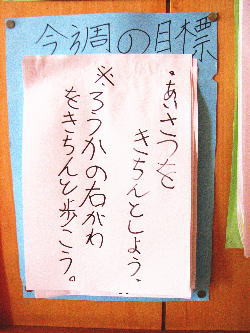 今週の目標
・あいさつを
きちんとしよう。
※ろうかの右がわ
をきちんと歩こう。